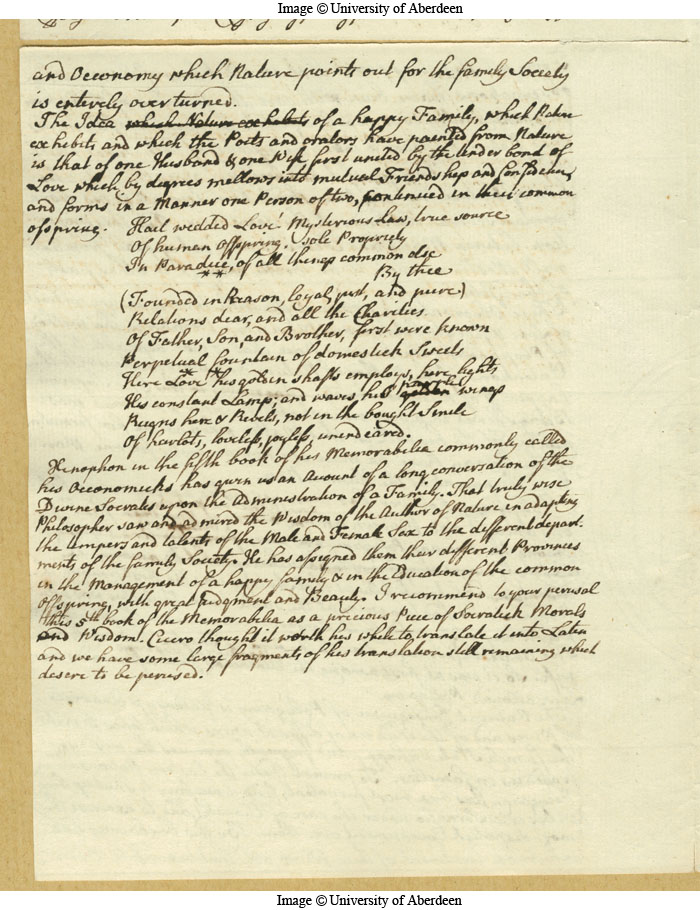 Image © University of Aberdeen
and Oeconomy which Nature points out for the family Society
is entirely overturned.
The Idea which Nature exhibits of a happy Family, which Nature
exhibits and which the Poets and orators have painted from Nature
is that of one Husband & one Wife, first united by the tender bond of
Love which by degrees mellows into mutual Friendship and Confidence,
and forms in a Manner one Person of two, continued in their common
ofspring.
Hail wedded Love! Mysterious Law, true source
Of human Offspring. Sole Propriety
In Paradice, of all things common else
* *
By thee
(Founded in Reason, loyal, just, and pure)
Relations dear, and all the Charities
Of Father, Son, and Brother, first were known
Perpetual fountain of domestick Sweets
* *
Here Love his golden shafts employs, here lights
His constant Lamp; and waves his purple golden wings
Reigns here & Revels, not in the bought Smile
Of harlots, loveless, joyless, unendeared.
Xenophon in the fifth book of his Memorabilia commonly called
his Oeconomicks has given us an Account of a long conversation of the
Divine Socrates upon the Administration of a Family. That truly wise
Philosopher saw and admired the Wisdom of the Author of Nature in adapting
the tempers and talents of the Male and Female Sex to the different depart-
ments of the family Society. He has assigned them their different Provinces
in the Management of a happy family & in the Education of the common
Offspring, with great Judgment and Beauty. I recommend to your perusal
this 5th book of the Memorabilia as a precious Piece of Socratick Morals
and Wisdom. Cicero thought it worth his while to translate it into Latin
and we have some large fragments of his translation still remaining which
deserve to be perused.
Image © University of Aberdeen